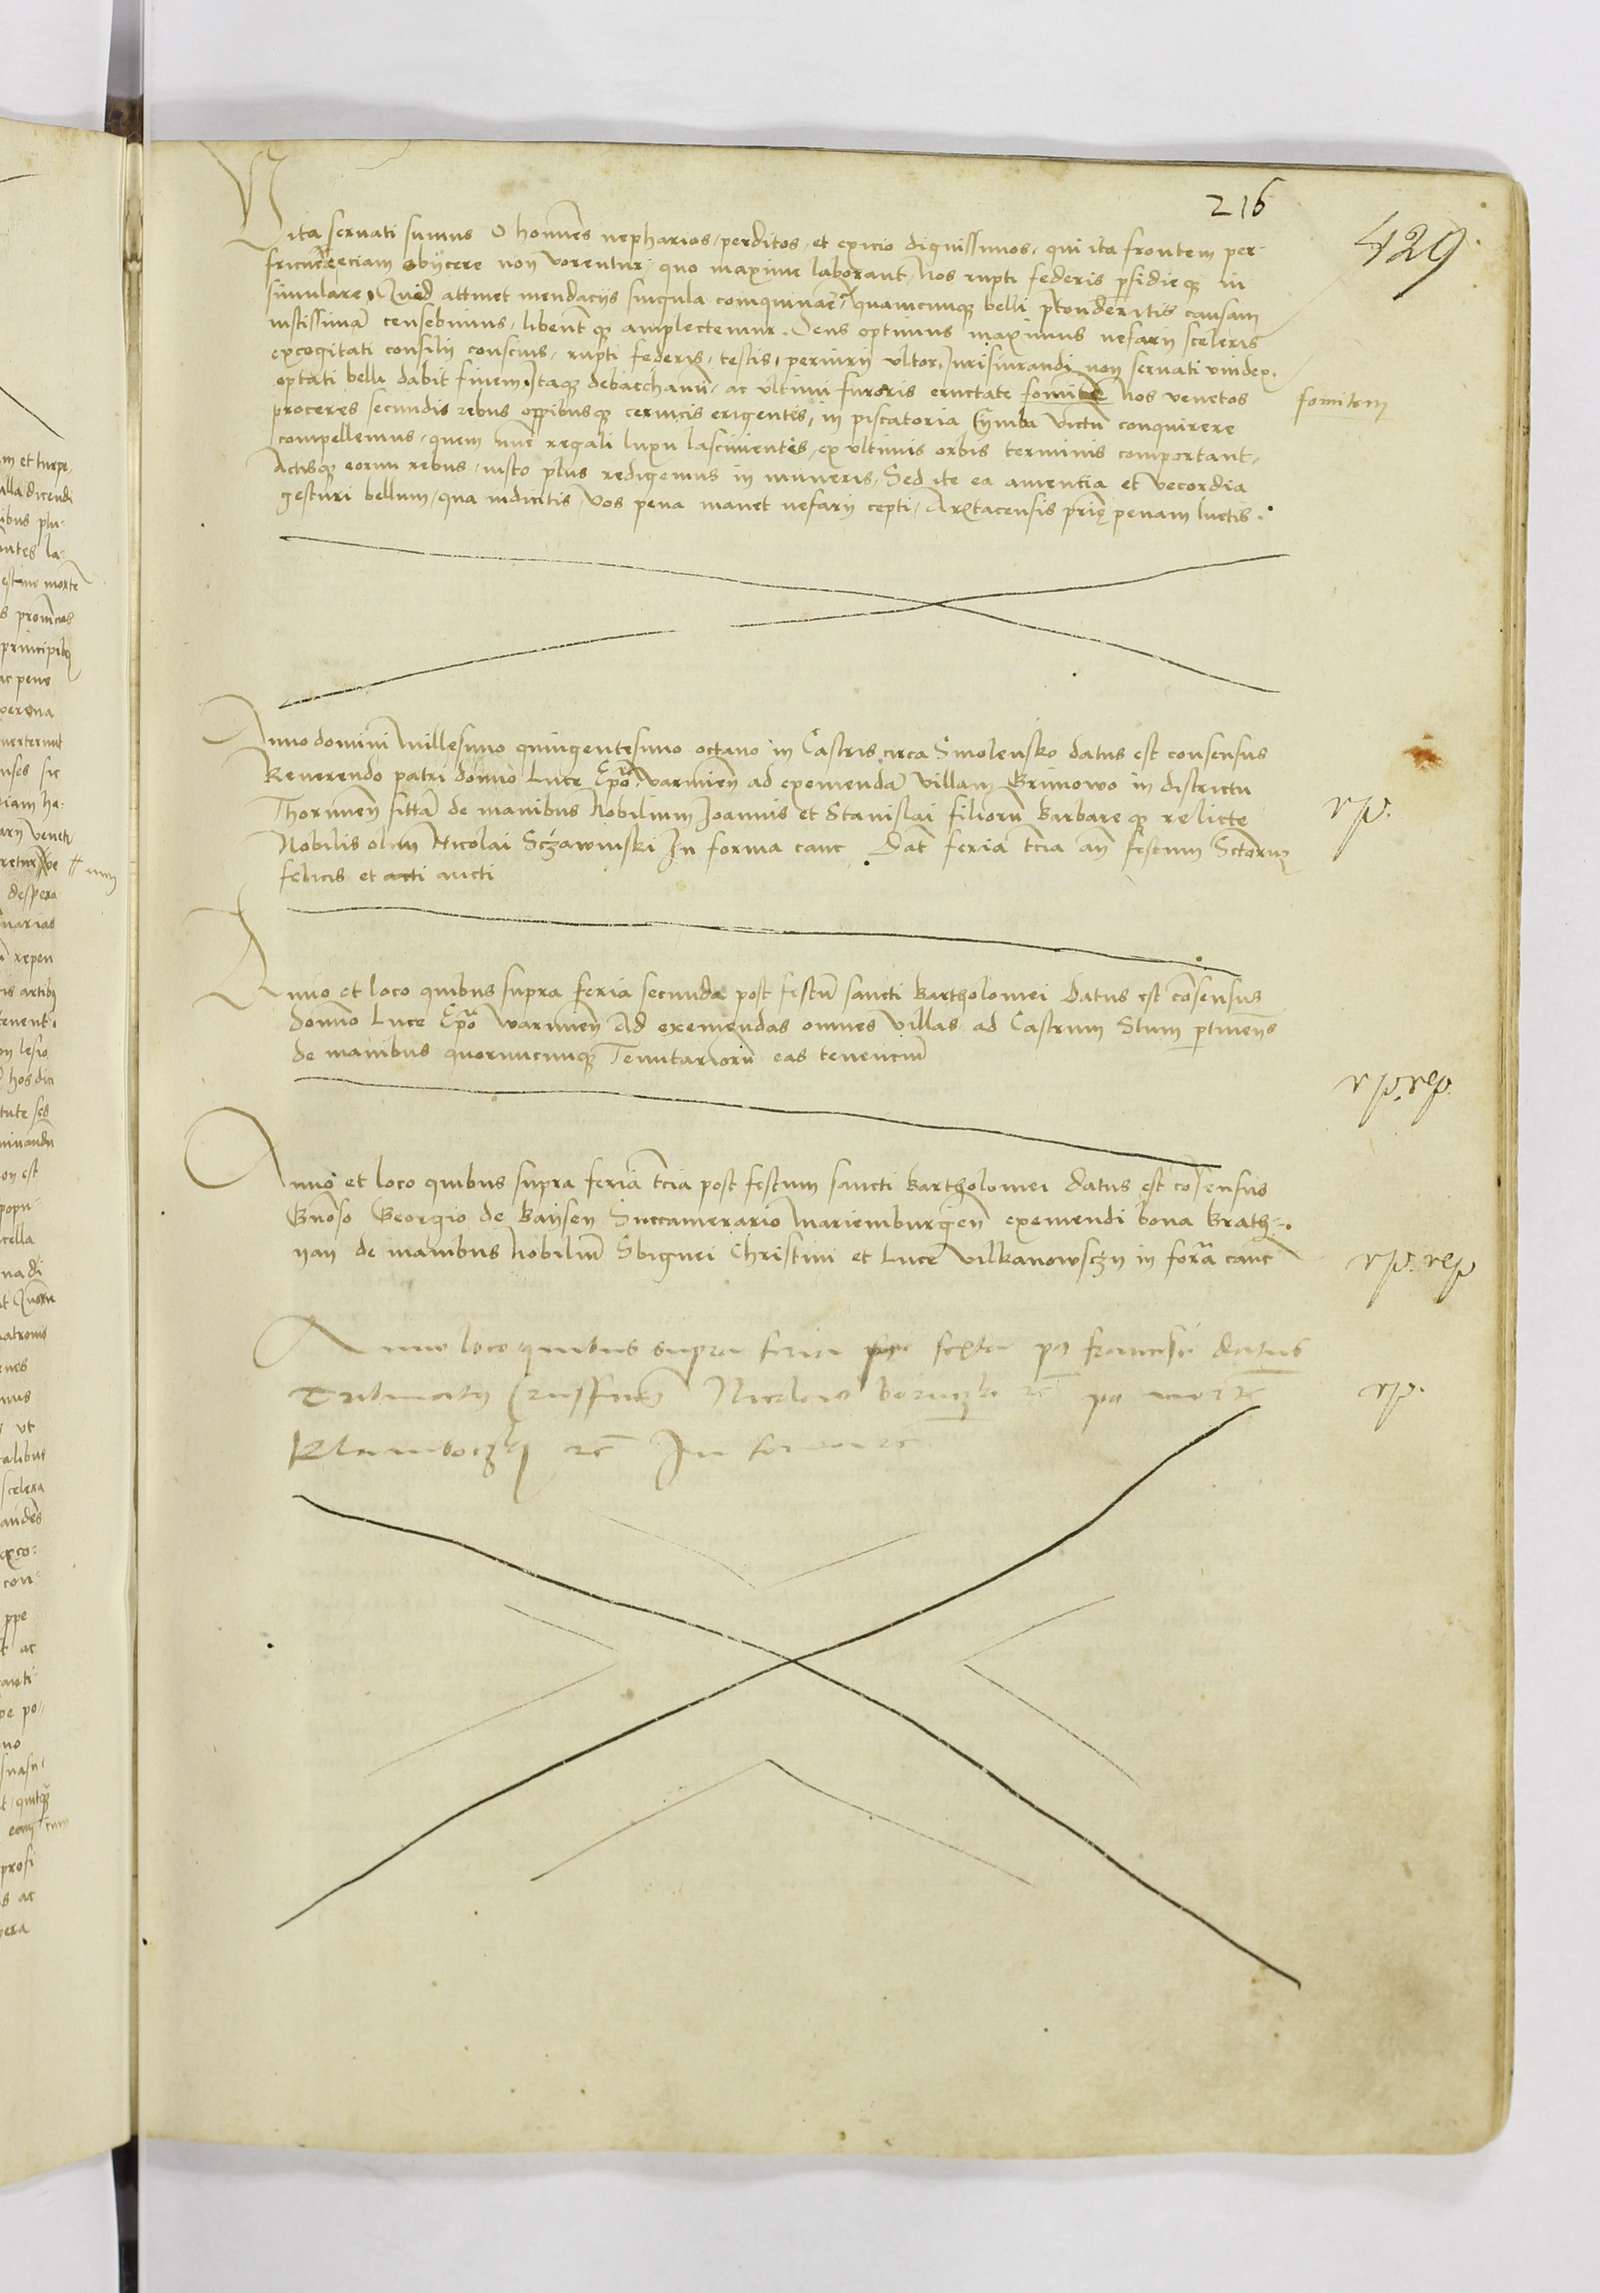 216
429
Vita servati sumus O homines nepharios, perditos, et exicio dignissimos, qui ita frontem per-
fricuere eciam obijcere non verentur, quo maxime laborant, Nos rupti federis perfidieque in
simulare, Quid attinet mendacijs singula coinquinare, quamcunque belli ptenderitis causam
iustissimam censebimus, libentque amplectemur. Deus optimus maximus nefarij sceleris
excogitati consilij conscius, rupti federis, testis, periurij ultor, Jurisiurandi non servati vindex,
optati belli dabit finem, Itaque debacchamini, ac ultimi furoris eructate fomite Nos venetos
fomitem
proceres secundis rebus oppibusque cervicis erigentis, in piscatoria Cymba victum conquirere
compellemus, quem nunc regali luxu lascivientes, ex ultimis orbis terminis comportant,
Actisque eorum rebus, iusto plus redigemus in numeris, Sed ite ea amentia et vecordia
gesturi bellum, qua indicitis, vos pena manet nefarij cepti, penam luetis.
Anno domini Millesimo quingentesimo octavo in Castris circa Smolensko datus est consensus
Reverendo patri domino Luce Epo varmien ad exemendam villam Grunowo in districtu
Thorunen sittam de manibus Nobilium Joannis et Stanislai filiorum barbareque relicte
rp.
Nobilis olim Nicolai Sczawinski In forma canc Dat feria tcia an festum Sctorum
felicis et acti aucti
Anno et loco quibus supra feria secunda post festum sancti bartholomei datus est consensus
domino Luce Epo warmien Ad exemendas omnes villas ad Castrum Stum ptinens
de manibus quorumcunque Tenutariorum eas tenencium
rp. rep.
Anno et loco quibus supra feria tcia post festum sancti bartholomei datus est consensus
Gnoso Georgio de baysen Succamerario Mariemburgen exemendi bona brath-
nan de manibus Nobilium Sbignei Christini et Luce vilkanowsczy in forma canc
rp. rep
Anno loco quibus supra feria sexta po francisci datus
Nicolao po mortem
rp.
In forma etc